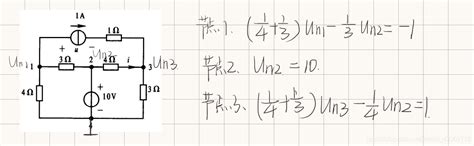 1A
1Ω
+ u -
Un1 1 3Ω 2 Un2 4Ω i 3 Un3
4Ω + 10V - 3Ω
4
节点1. (1/4+1/3)Un1-1/3Un2=-1
节点2. Un2=10.
节点3. (1/4+1/3)Un3-1/4Un2=1